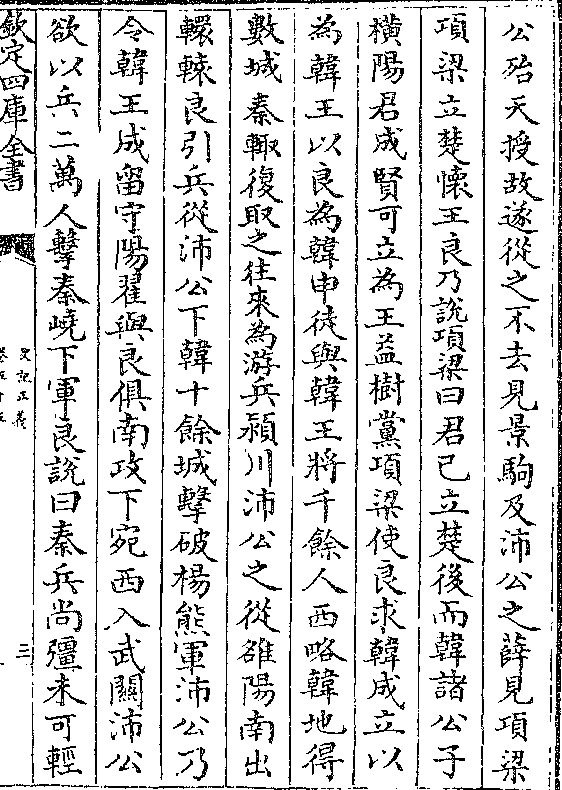 公殆天授故遂從之不去見景駒及沛公之薛見項梁
項梁立楚懷王良乃說項梁曰君已立楚後而韓諸公子
橫陽君成賢可立為王益樹黨項梁使良求韓成立以
為韓王以良為韓申徒與韓王將千餘人西略韓地得
數城秦輙復取之往來為游兵潁川沛公之從雒陽南出
轘轅良引兵從沛公下韓十餘城擊破楊熊軍沛公乃
令韓王成留守陽翟與良俱南攻下宛西入武關沛公
欲以兵二萬人擊秦嶢下軍良說曰秦兵尚彊未可輕
欽定四庫全書
史記正義
卷五十五
三